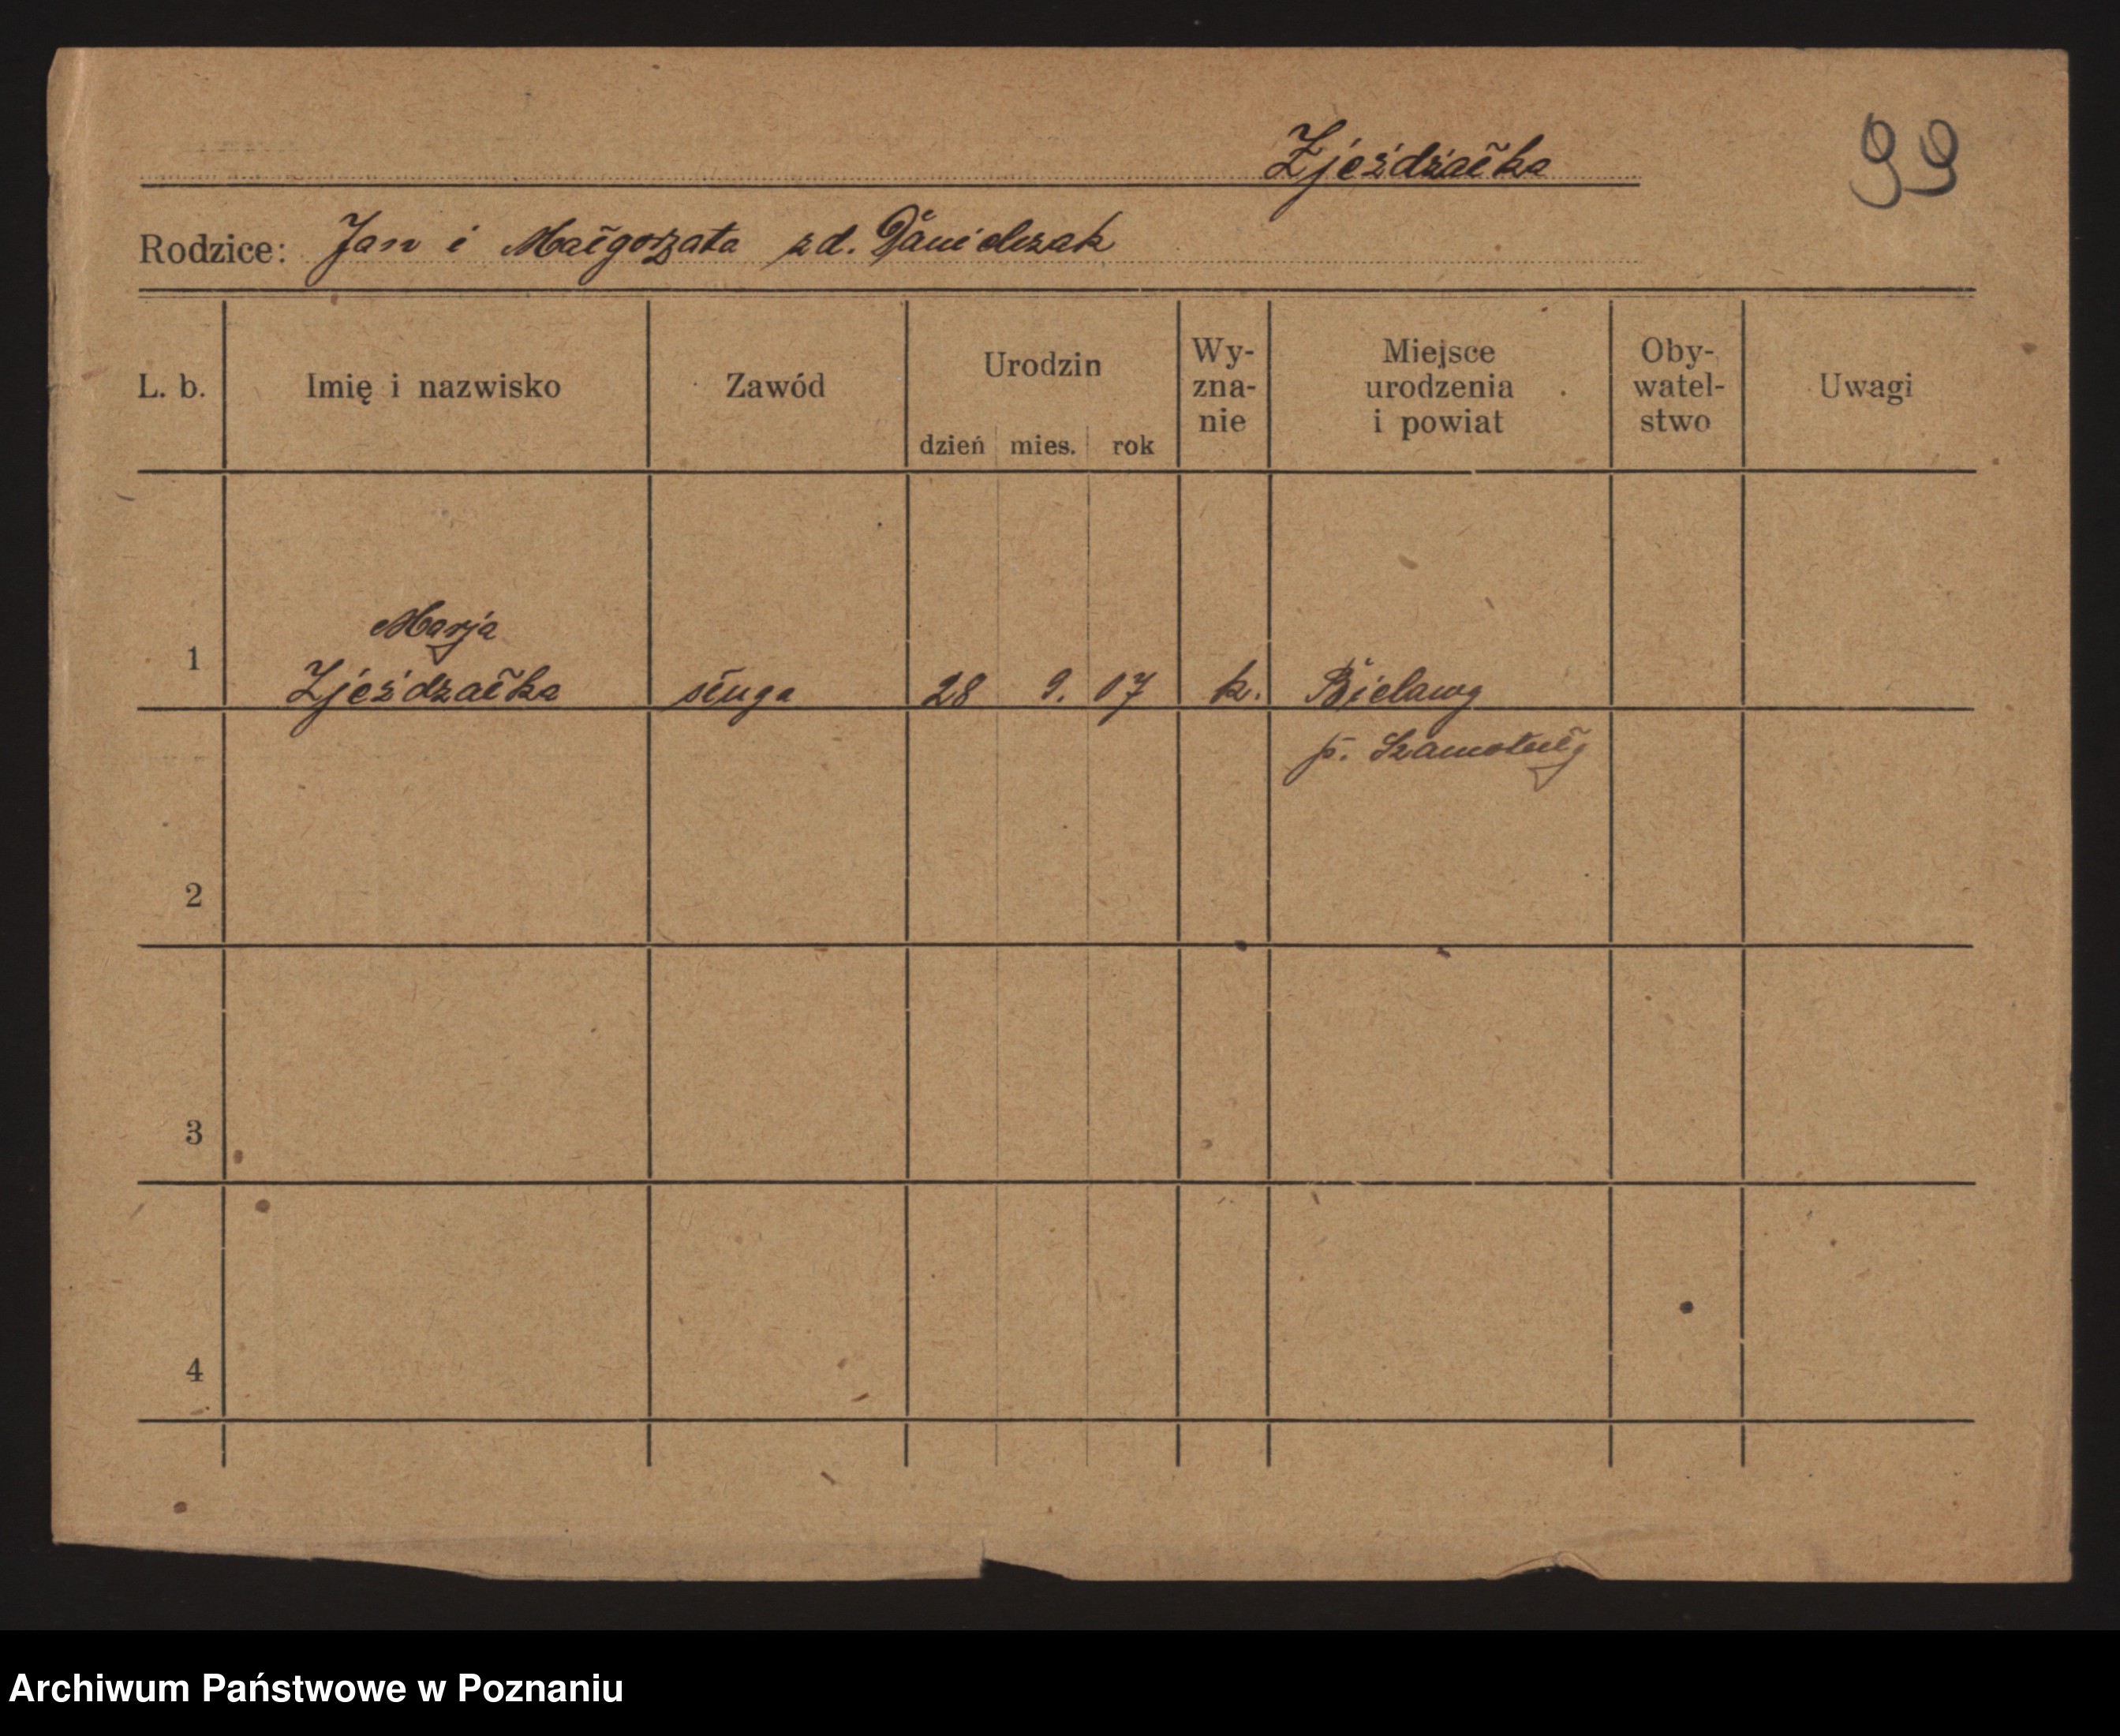 Zjeżdżałka
99
Rodzice: Jan i Małgorzata zd. Danielczak
L. b. Imię i nazwisko Zawód Urodzin dzień mies. rok Wy-zna-nie Miejsce urodzenia i powiat Oby-watel-stwo Uwagi
Marja
1 Zjeżdżałka sługa 28 9. 07 k. Bielawy
p. Szamotuły
2
3
4
Archiwum Państwowe w Poznaniu